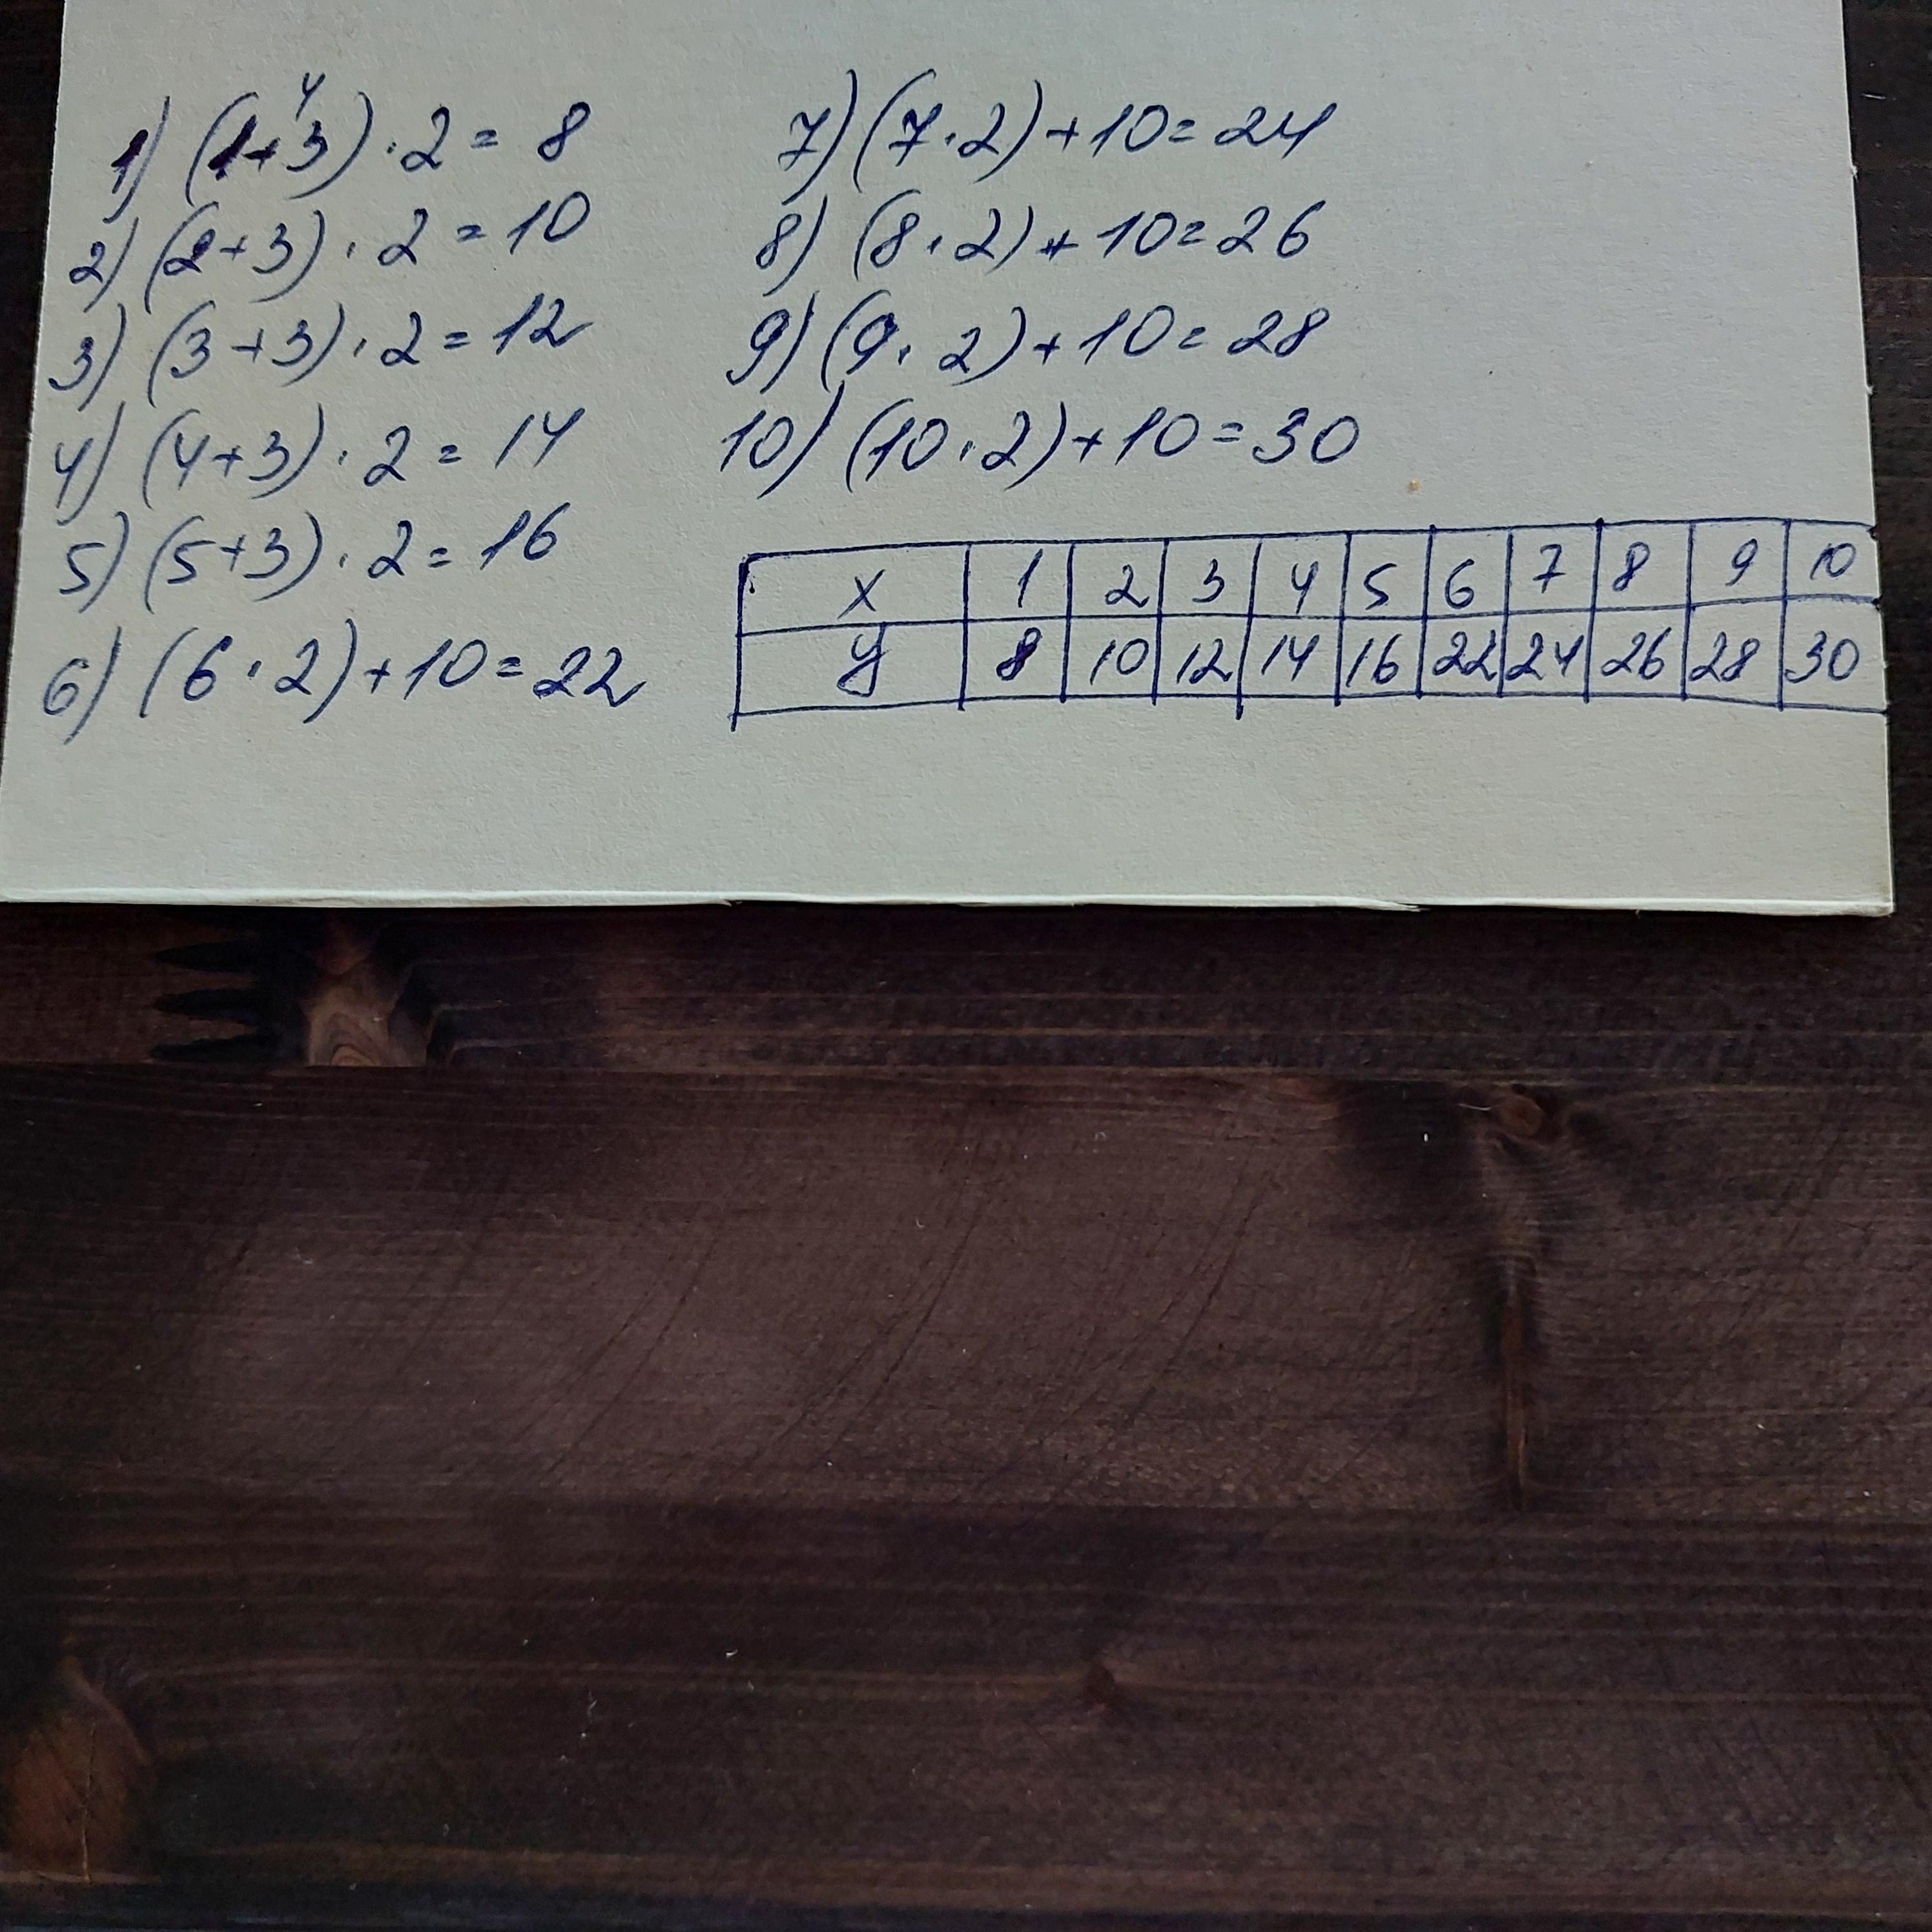 4
1) (1+3) · 2 = 8
2) (2+3) · 2 = 10
3) (3+3) · 2 = 12
4) (4+3) · 2 = 14
5) (5+3) · 2 = 16
6) (6 · 2) + 10 = 22
7) (7 · 2) + 10 = 24
8) (8 · 2) + 10 = 26
9) (9 · 2) + 10 = 28
10) (10 · 2) + 10 = 30
x 1 2 3 4 5 6 7 8 9 10
y 8 10 12 14 16 22 24 26 28 30